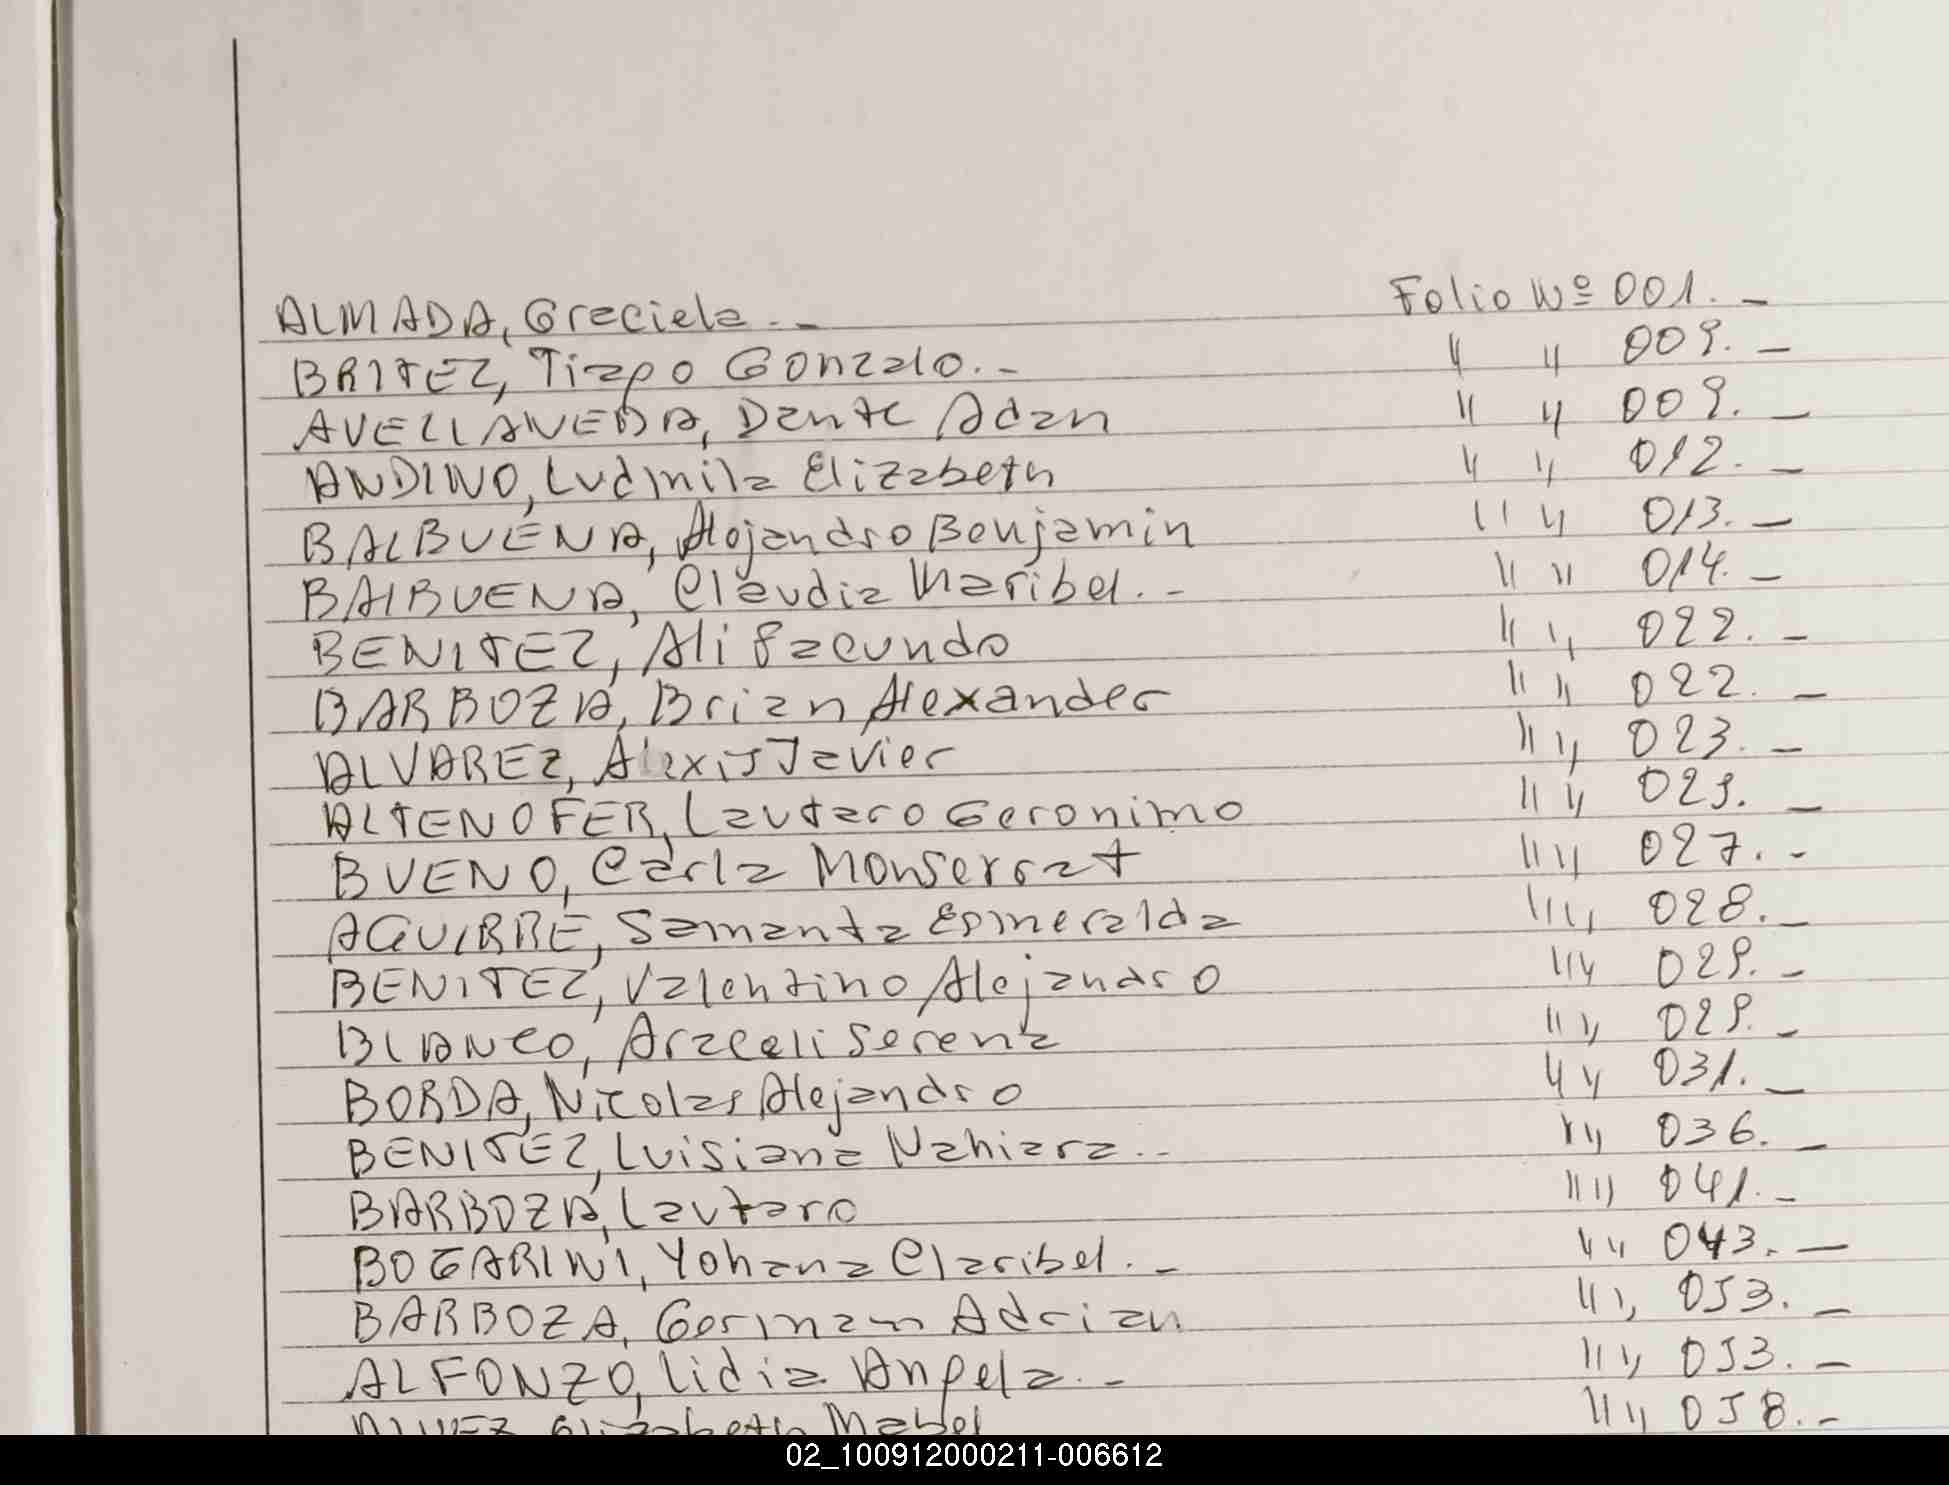 ALMADA, Graciela. - Folio Nº 001. -
BRITEZ, Tiago Gonzalo. - " " 009. -
AVELLANEDA, Dante Adan " " 009. -
ANDINO, Ludmila Elizabeth " " 012. -
BALBUENA, Alejandro Benjamin " " 013. -
BALBUENA, Claudia Maribel. - " " 014. -
BENITEZ, Ali Facundo " " 022. -
BARBOZA, Brian Alexander " " 022. -
ALVAREZ, Alexis Javier " " 023. -
ALTENOFER, Lautaro Geronimo " " 023. -
BUENO, Carla Monserrat " " 027. -
AGUIRRE, Samanta Esmeralda " " 028. -
BENITEZ, Valentino Alejandro " " 029. -
BLANCO, Araceli Serena " " 029. -
BORDA, Nicolas Alejandro " " 031. -
BENITEZ, Luisiana Nahiara. - " " 036. -
BARBOZA, Lautaro " " 041. -
BOGARINI, Yohana Claribel. - " " 043. -
BARBOZA, German Adrian " " 053. -
ALFONZO, Lidia Angela. - " " 053. -
Elizabeth Mabel " " 058. -
02_100912000211-006612